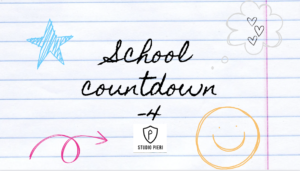 School
countdown
-4
P
STUDIO PIERI